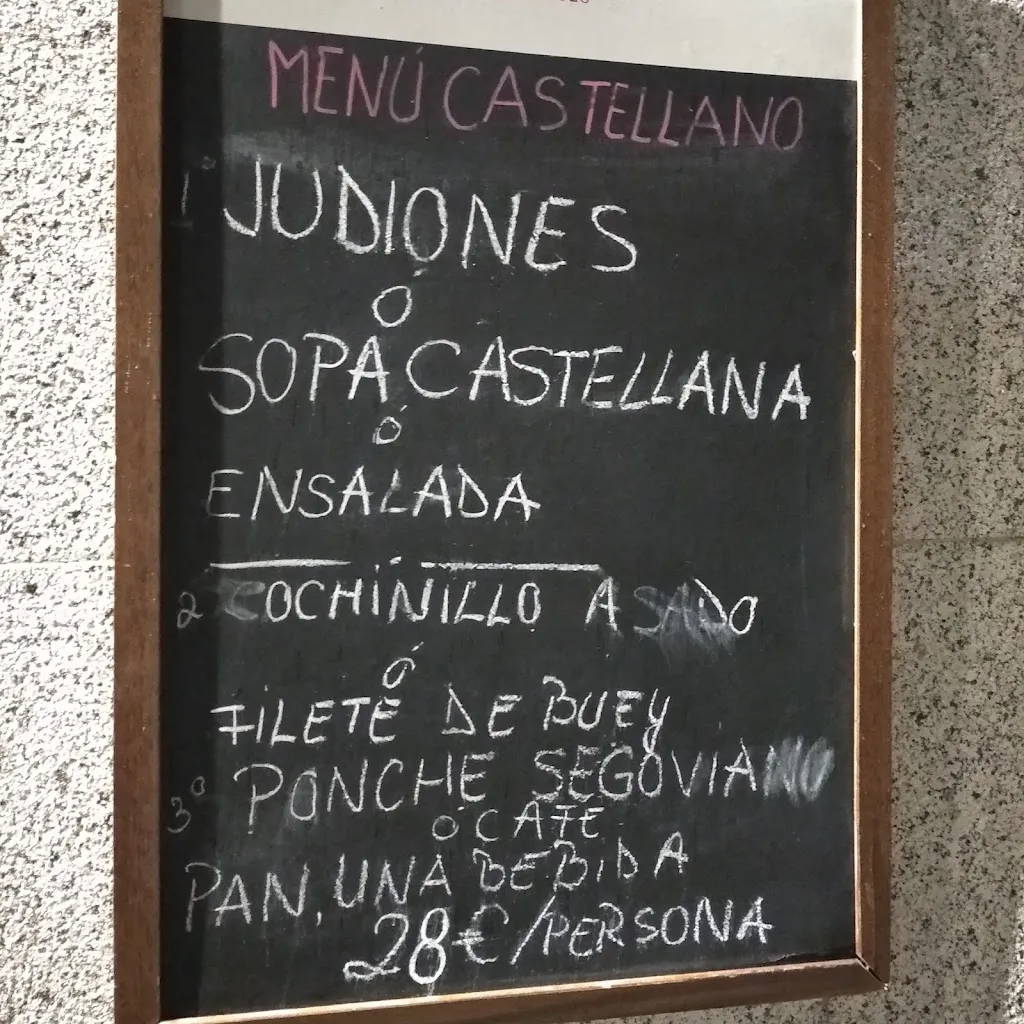 MENÚ CASTELLANO
1º JUDIONES
O
SOPA CASTELLANA
Ó
ENSALADA
2 COCHINILLO ASADO
Ó
FILETE DE BUEY
3º PONCHE SEGOVIANO
Ó CAFE
PAN, UNA BEBIDA
28€/PERSONA